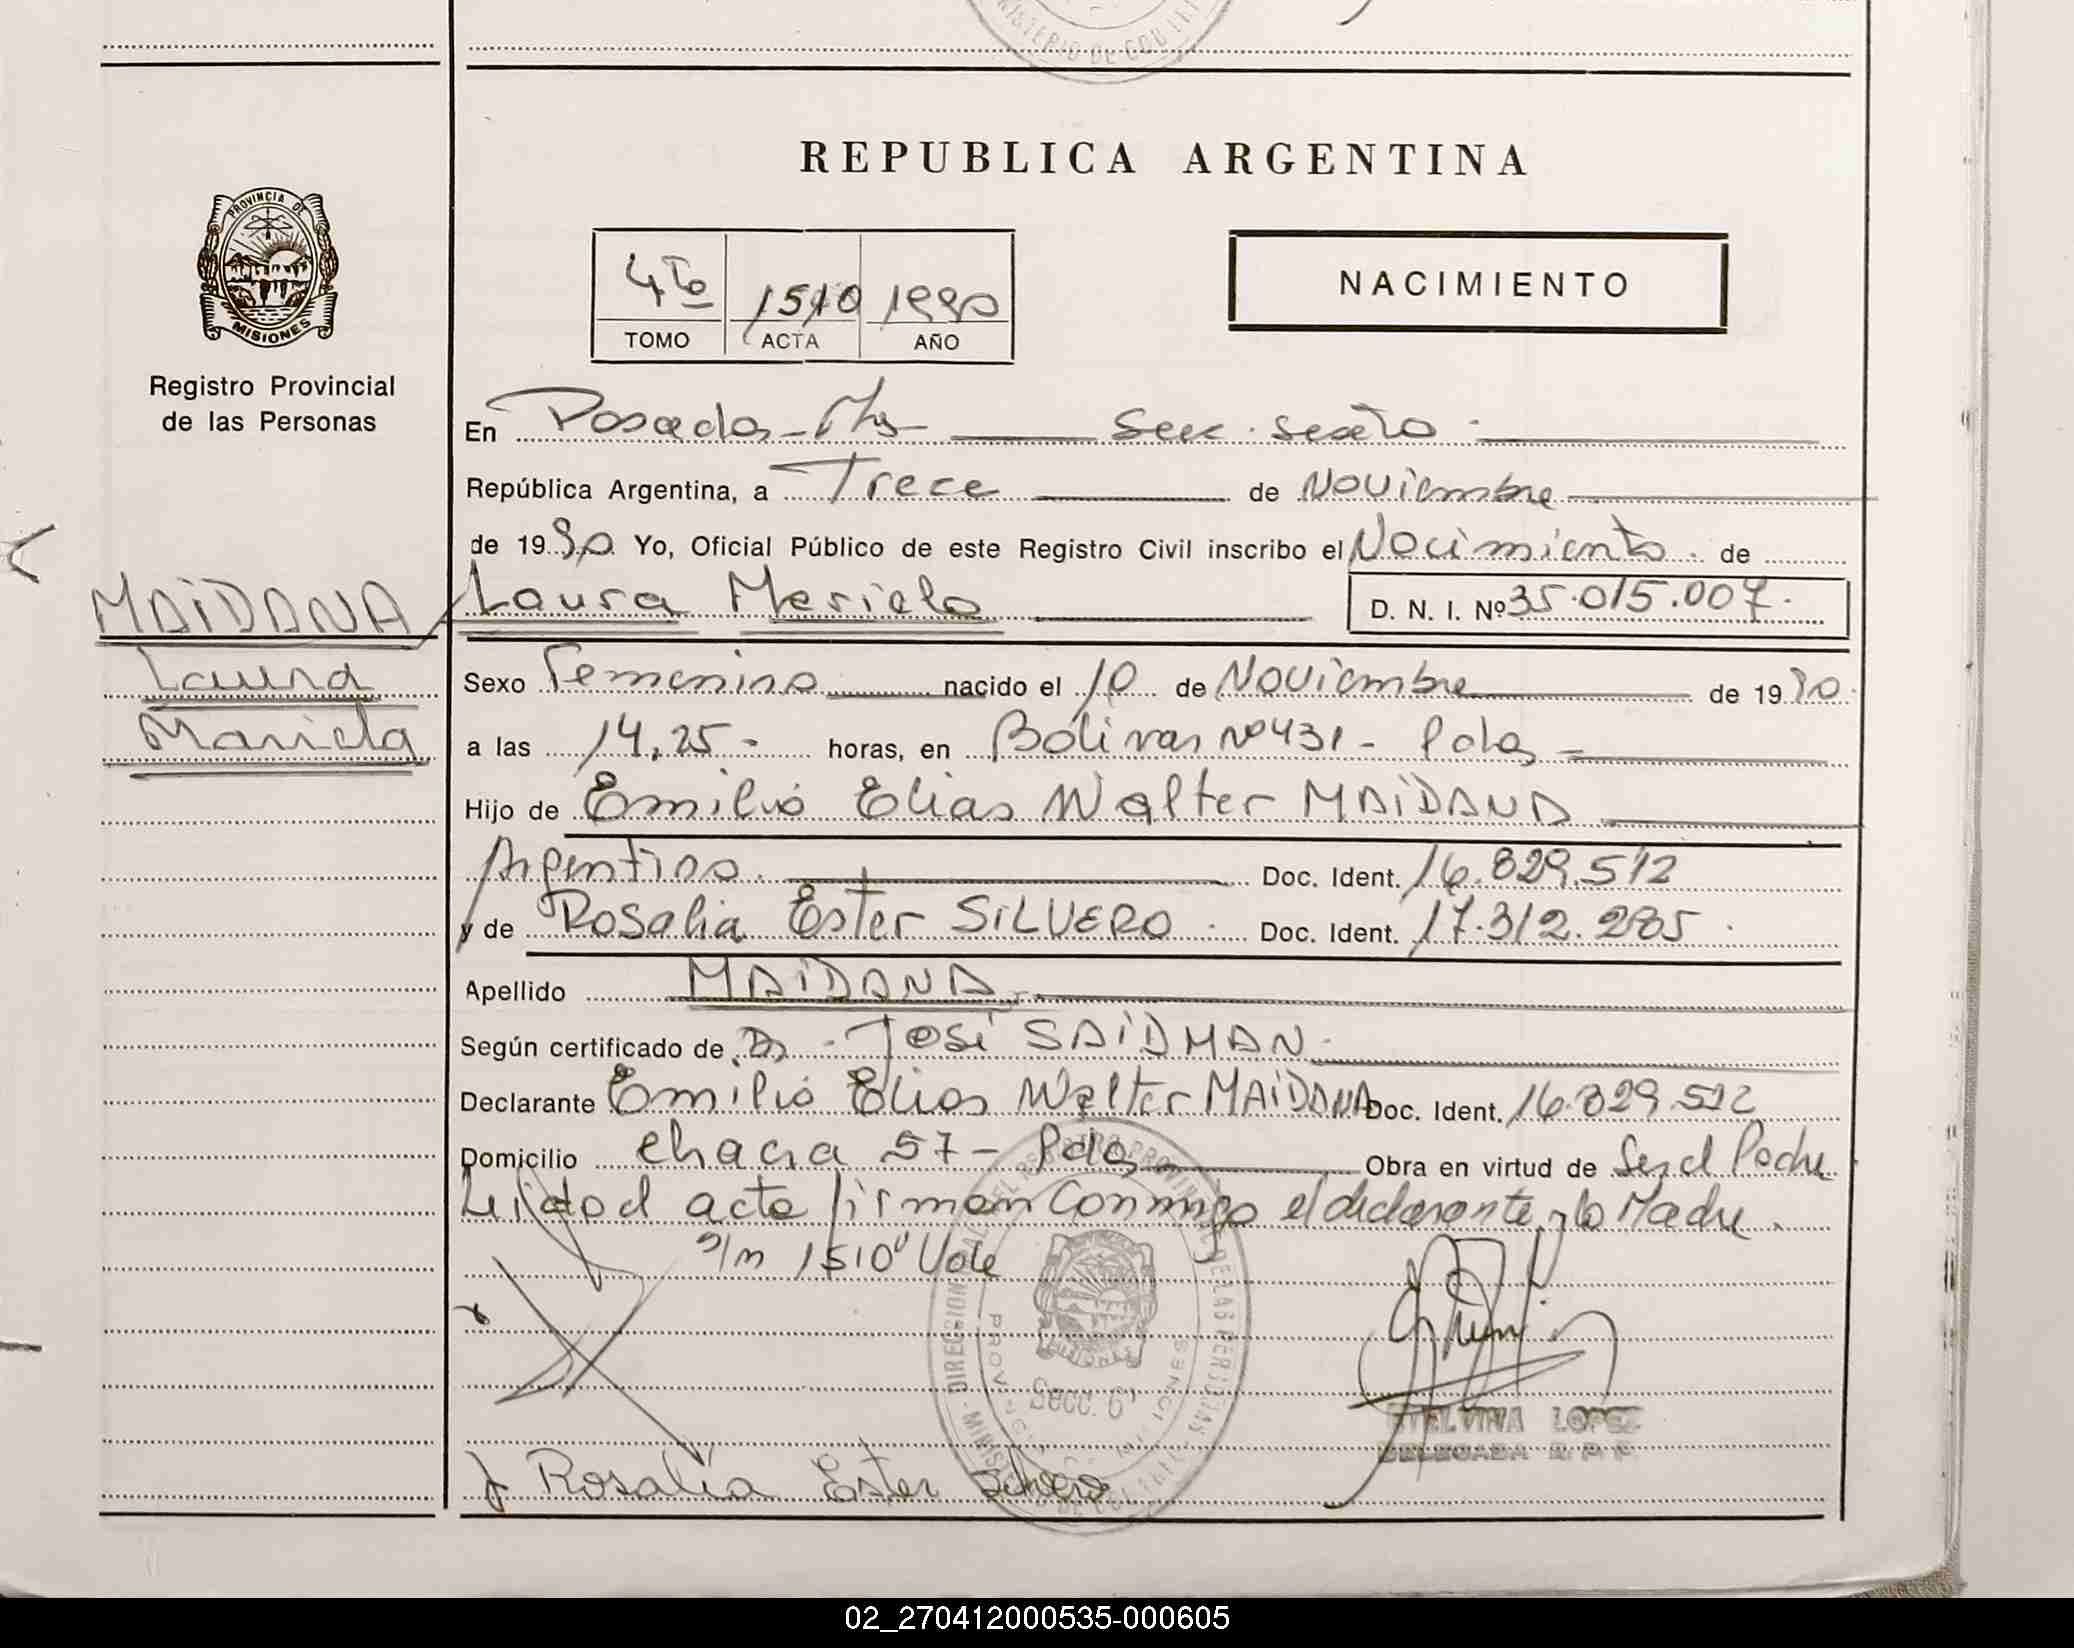 MINISTERIO DE GOBIERNO
REPUBLICA ARGENTINA
PROVINCIA DE
MISIONES
Registro Provincial
de las Personas
4to 1510 1990
TOMO ACTA AÑO
NACIMIENTO
En Posadas - Mns Secc. sexta
República Argentina, a Trece de Noviembre
de 1990 Yo, Oficial Público de este Registro Civil inscribo el Nacimiento de
MAIDANA Laura Mariela D. N. I. Nº 35.015.007
Laura
Mariela
Sexo Femenino nacido el 10 de Noviembre de 1990
a las 14,25 horas, en Bolivar Nº 431 - Pdas
Hijo de Emilio Elias Walter MAIDANA
Argentino. Doc. Ident. 16.829.512
y de Rosalia Ester SILVERO Doc. Ident. 17.312.285
Apellido MAIDANA
Según certificado de Dr. José SAIDMAN
Declarante Emilio Elias Walter MAIDANA Doc. Ident. 16.829.512
Domicilio chacra 57 - Pdas Obra en virtud de Ser el Padre
Leida el acta firman conmigo el declarante y la Madre.
s/r 1510 Vale
MISIONES
Secc. 6ª
ETELVINA LOPEZ
DELEGADA R. P. P.
Rosalia Ester Silvero
02_270412000535-000605